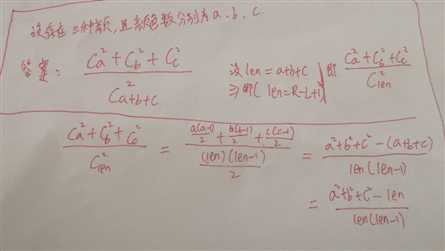 设存在三种颜色，且颜色数分别为a、b、c
答案： (C_a^2 + C_b^2 + C_c^2) / C_{a+b+c}^2 设len = a+b+c (len = R-L+1) 即 (C_a^2 + C_b^2 + C_c^2) / C_{len}^2
(C_a^2 + C_b^2 + C_c^2) / C_{len}^2 = (a(a-1)/2 + b(b-1)/2 + c(c-1)/2) / ((len)(len-1)/2) = (a²+b²+c²-(a+b+c)) / (len(len-1))
= (a²+b²+c²-len) / (len(len-1))